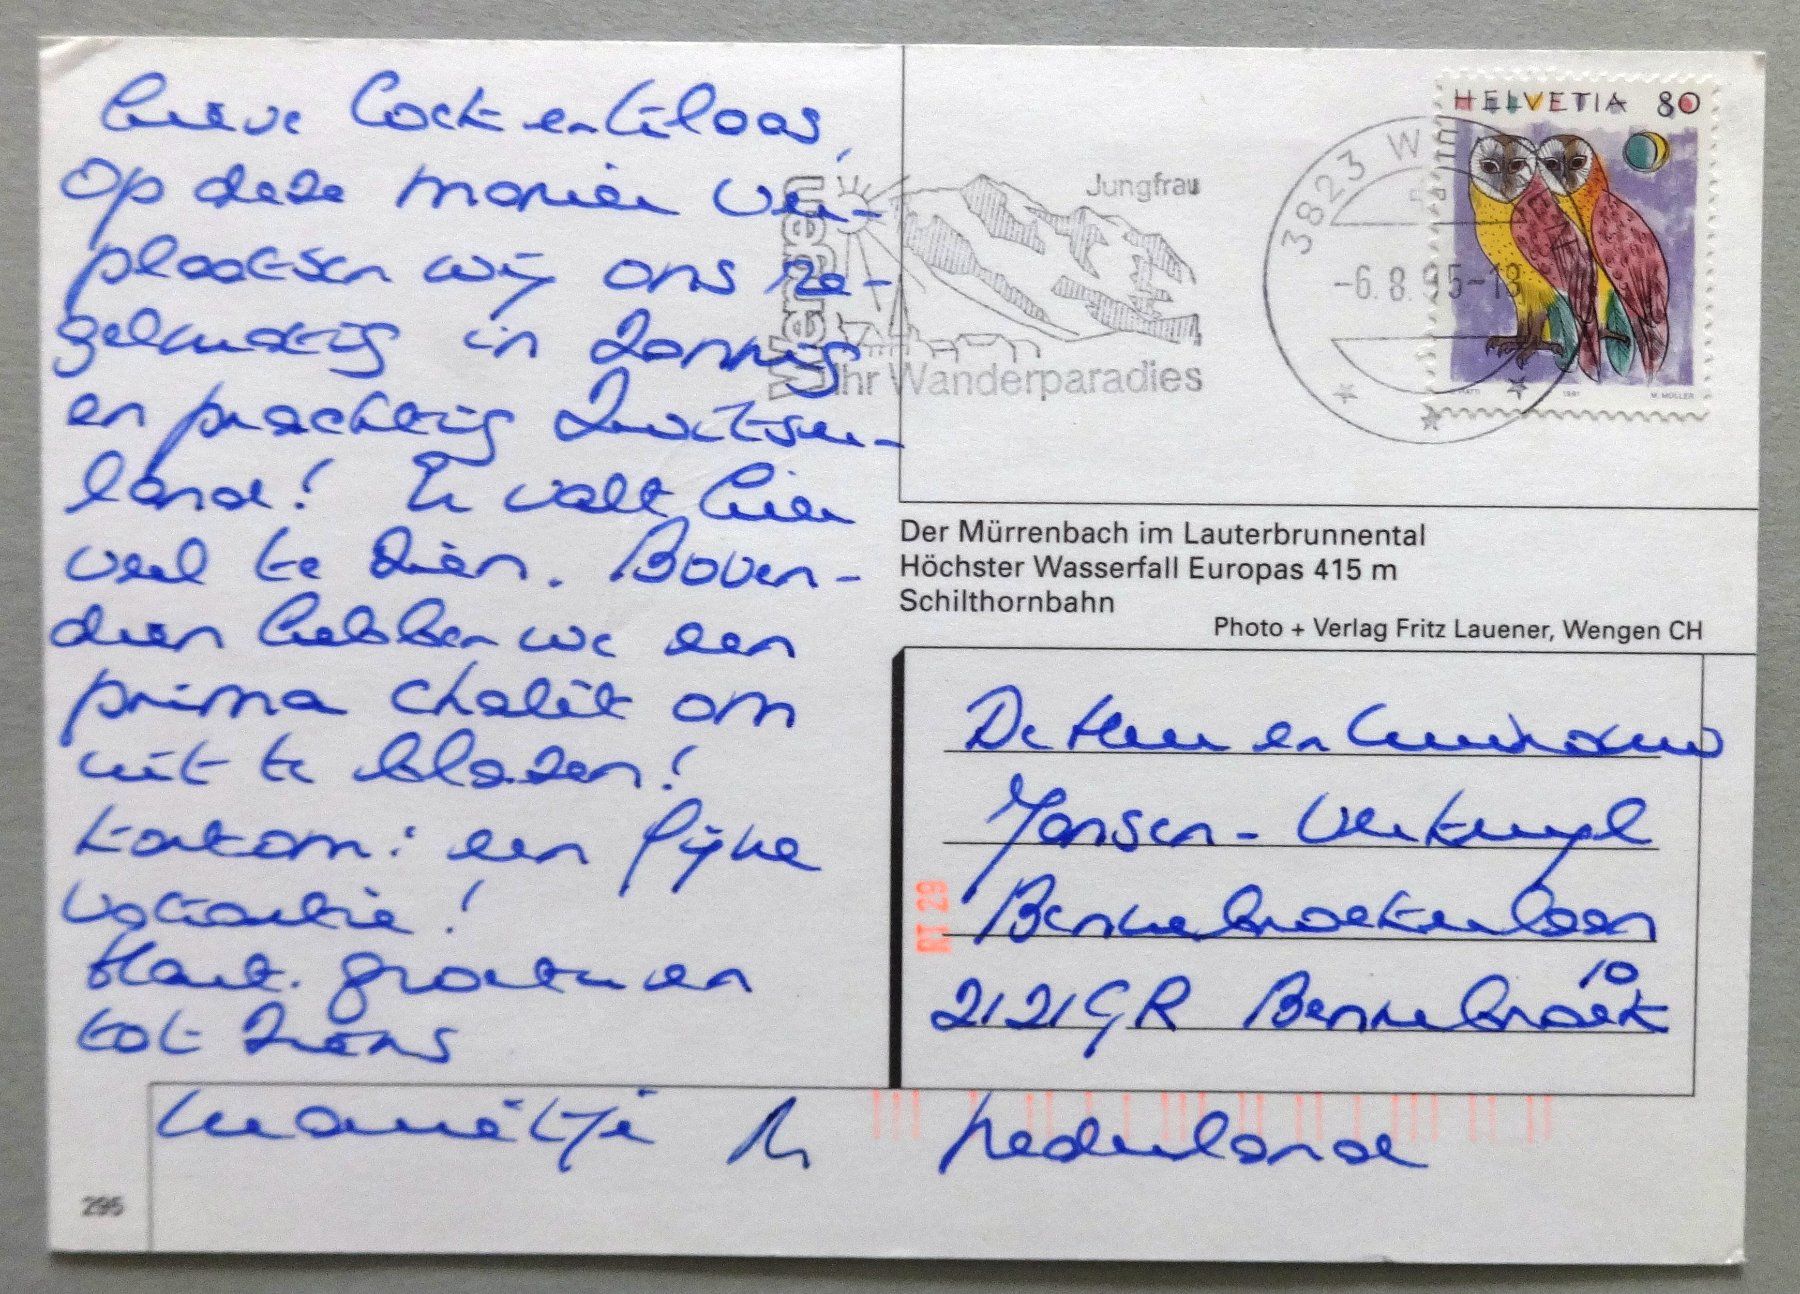 Lieve Cock en Klaas,
Op deze manier ver-
plaatsen wij ons re-
gelmatig in zonnig
en prachtig Zwitser-
land! Er valt hier
veel te zien. Boven-
dien hebben we een
prima chalêt om
uit te blazen!
Kortom: een fijne
vakantie!
Hart. groeten en
tot ziens
HELVETIA 80
Jungfrau
wengen
Ihr Wanderparadies
3823 WE
-6.8.95-18
1991
M. MÜLLER
Der Mürrenbach im Lauterbrunnental
Höchster Wasserfall Europas 415 m
Schilthornbahn
Photo + Verlag Fritz Lauener, Wengen CH
De Heer en Mevrouw
Jansen-
RT 29
Bennebroekerlaan
10
2121GR Bennebroek
Nederland
295